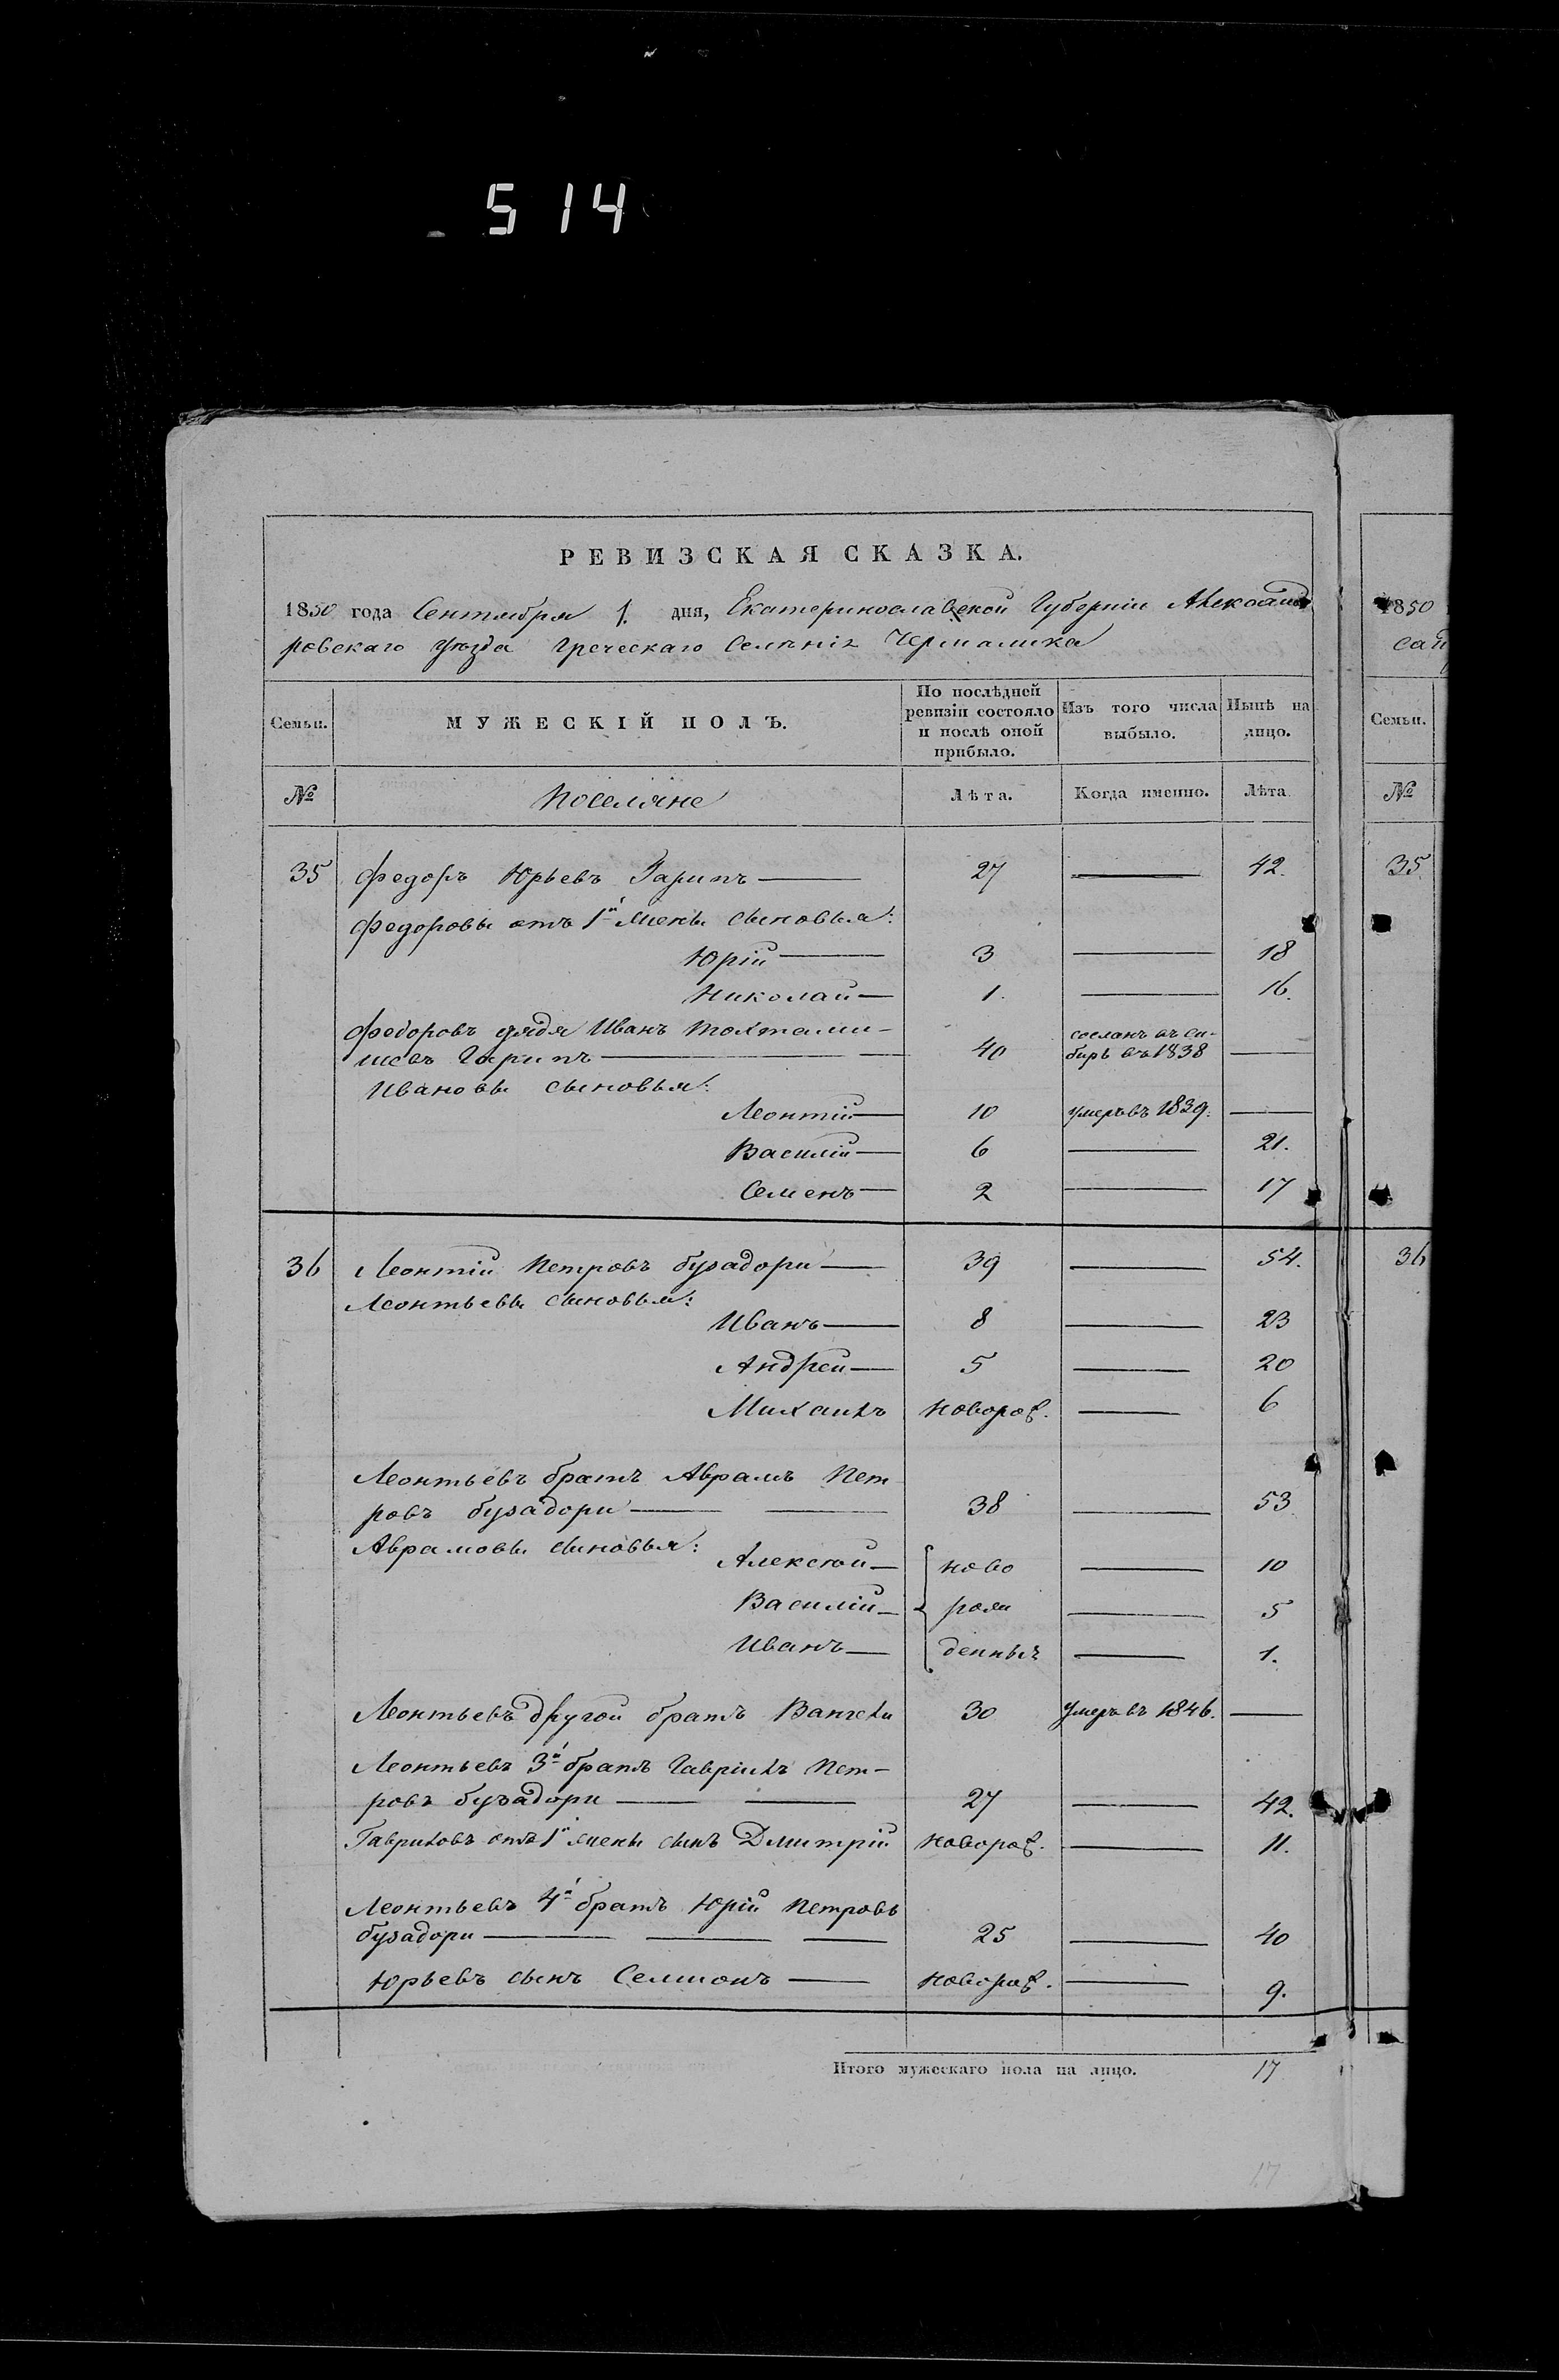 514
РЕВИЗСКАЯ СКАЗКА.
1850 года Сентября 1. дня, Екатеринославской Губерніи Александ
ровскаго уѣзда Греческаго Селенія Чермалика
Семьи. МУЖЕСКІЙ ПОЛЪ. По послѣдней ревизіи состояло и послѣ оной прибыло. Изъ того числа выбыло. Нынѣ на лицо.
№ Поселяне Лѣта. Когда именно. Лѣта
35 Федоръ Юрьевъ Гарипъ 27 42.
Федоровы отъ 1й жены сыновья:
Юрій 3 18
Николай 1. 16.
Федоровъ дядя Иванъ Тохтами-
шевъ Гарипъ 40 сосланъ въ си-
бирь въ 1838
Ивановы сыновья:
Леонтій 10 умеръ въ 1839.
Василій 6 21.
Семенъ 2 17
36 Леонтій Петровъ Бузадори 39 54.
Леонтьевы сыновья:
Иванъ 8 23
Андрей 5 20
Михаилъ новорож. 6
Леонтьевъ братъ Аврамъ Пет
ровъ Бузадори 38 53
Аврамовы сыновья:
Алексѣй ново 10
Василій рож 5
Иванъ денные 1.
Леонтьевъ другой братъ Вангели 30 умеръ въ 1846.
Леонтьевъ 3й братъ Гавріилъ Пет-
ровъ Бузадори 27 42.
Гавриловъ отъ 1й жены сынъ Дмитрій новорож. 11.
Леонтьевъ 4й братъ Юрій Петровъ
Бузадори 25 40
Юрьевъ сынъ Семионъ новорож. 9.
Итого мужескаго пола на лицо. 17
17
1850
Семьи.
№
35
36